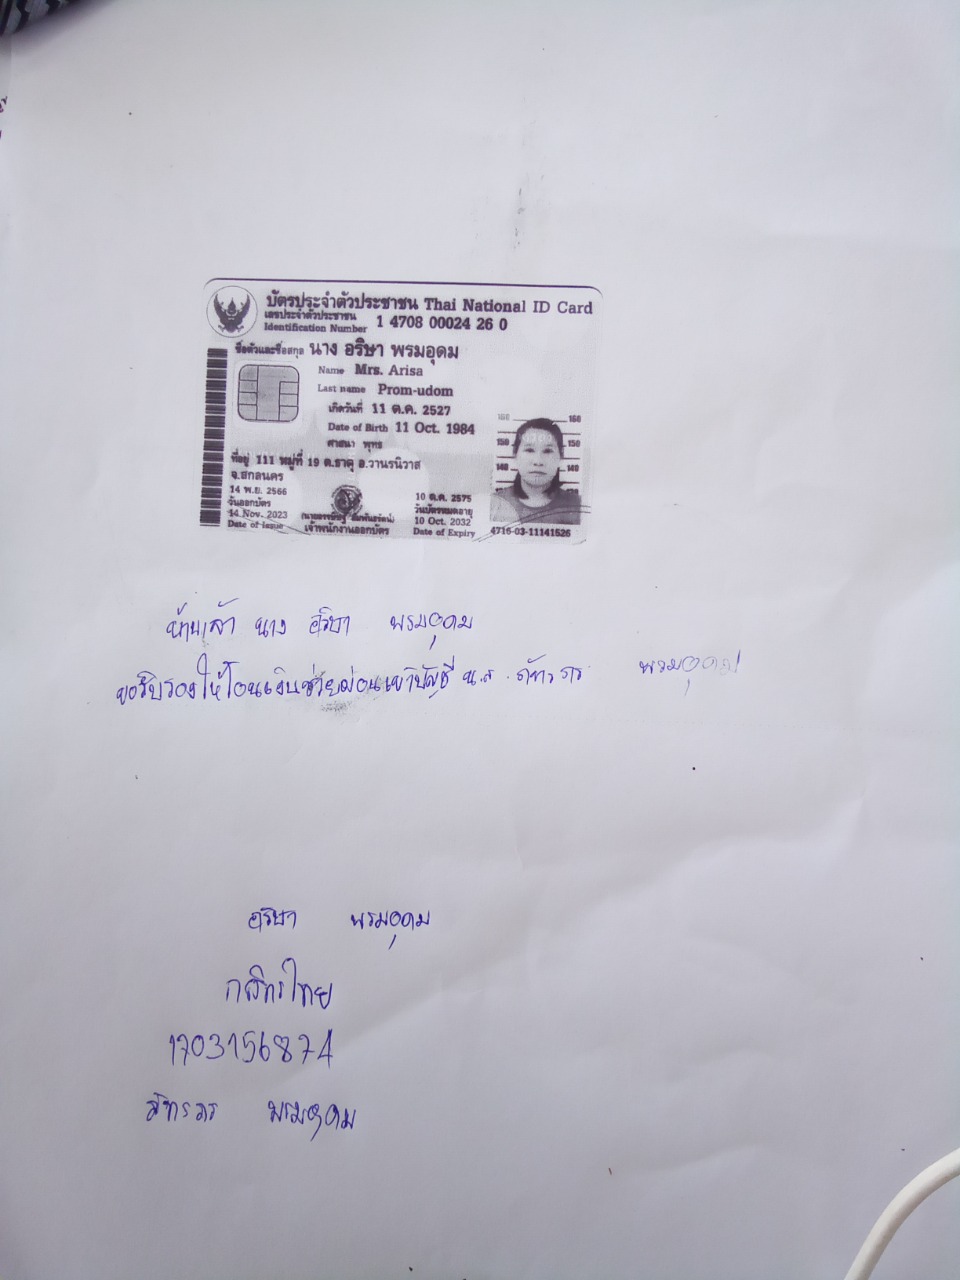 บัตรประจำตัวประชาชน Thai National ID Card
เลขประจำตัวประชาชน
Identification Number 1 4708 00024 26 0
ชื่อตัวและชื่อสกุล นาง อริษา พรมอุดม
Name Mrs. Arisa
Last name Prom-udom
เกิดวันที่ 11 ต.ค. 2527
Date of Birth 11 Oct. 1984
ศาสนา พุทธ
ที่อยู่ 111 หมู่ที่ 19 ต.ธาตุ อ.วานรนิวาส
จ.สกลนคร
14 พ.ย. 2566
วันออกบัตร
14 Nov. 2023
Date of Issue
เจ้าพนักงานออกบัตร
10 ต.ค. 2575
วันบัตรหมดอายุ
10 Oct. 2032
Date of Expiry
160 160
150 150
140 140
4716-03-11141526
ข้าพเจ้า นาง อริษา พรมอุดม
ขอรับรองให้โอนเงินช่วย เข้าบัญชี น.ส. พรมอุดม
อริษา พรมอุดม
กสิกรไทย
1703156874
พรมอุดม